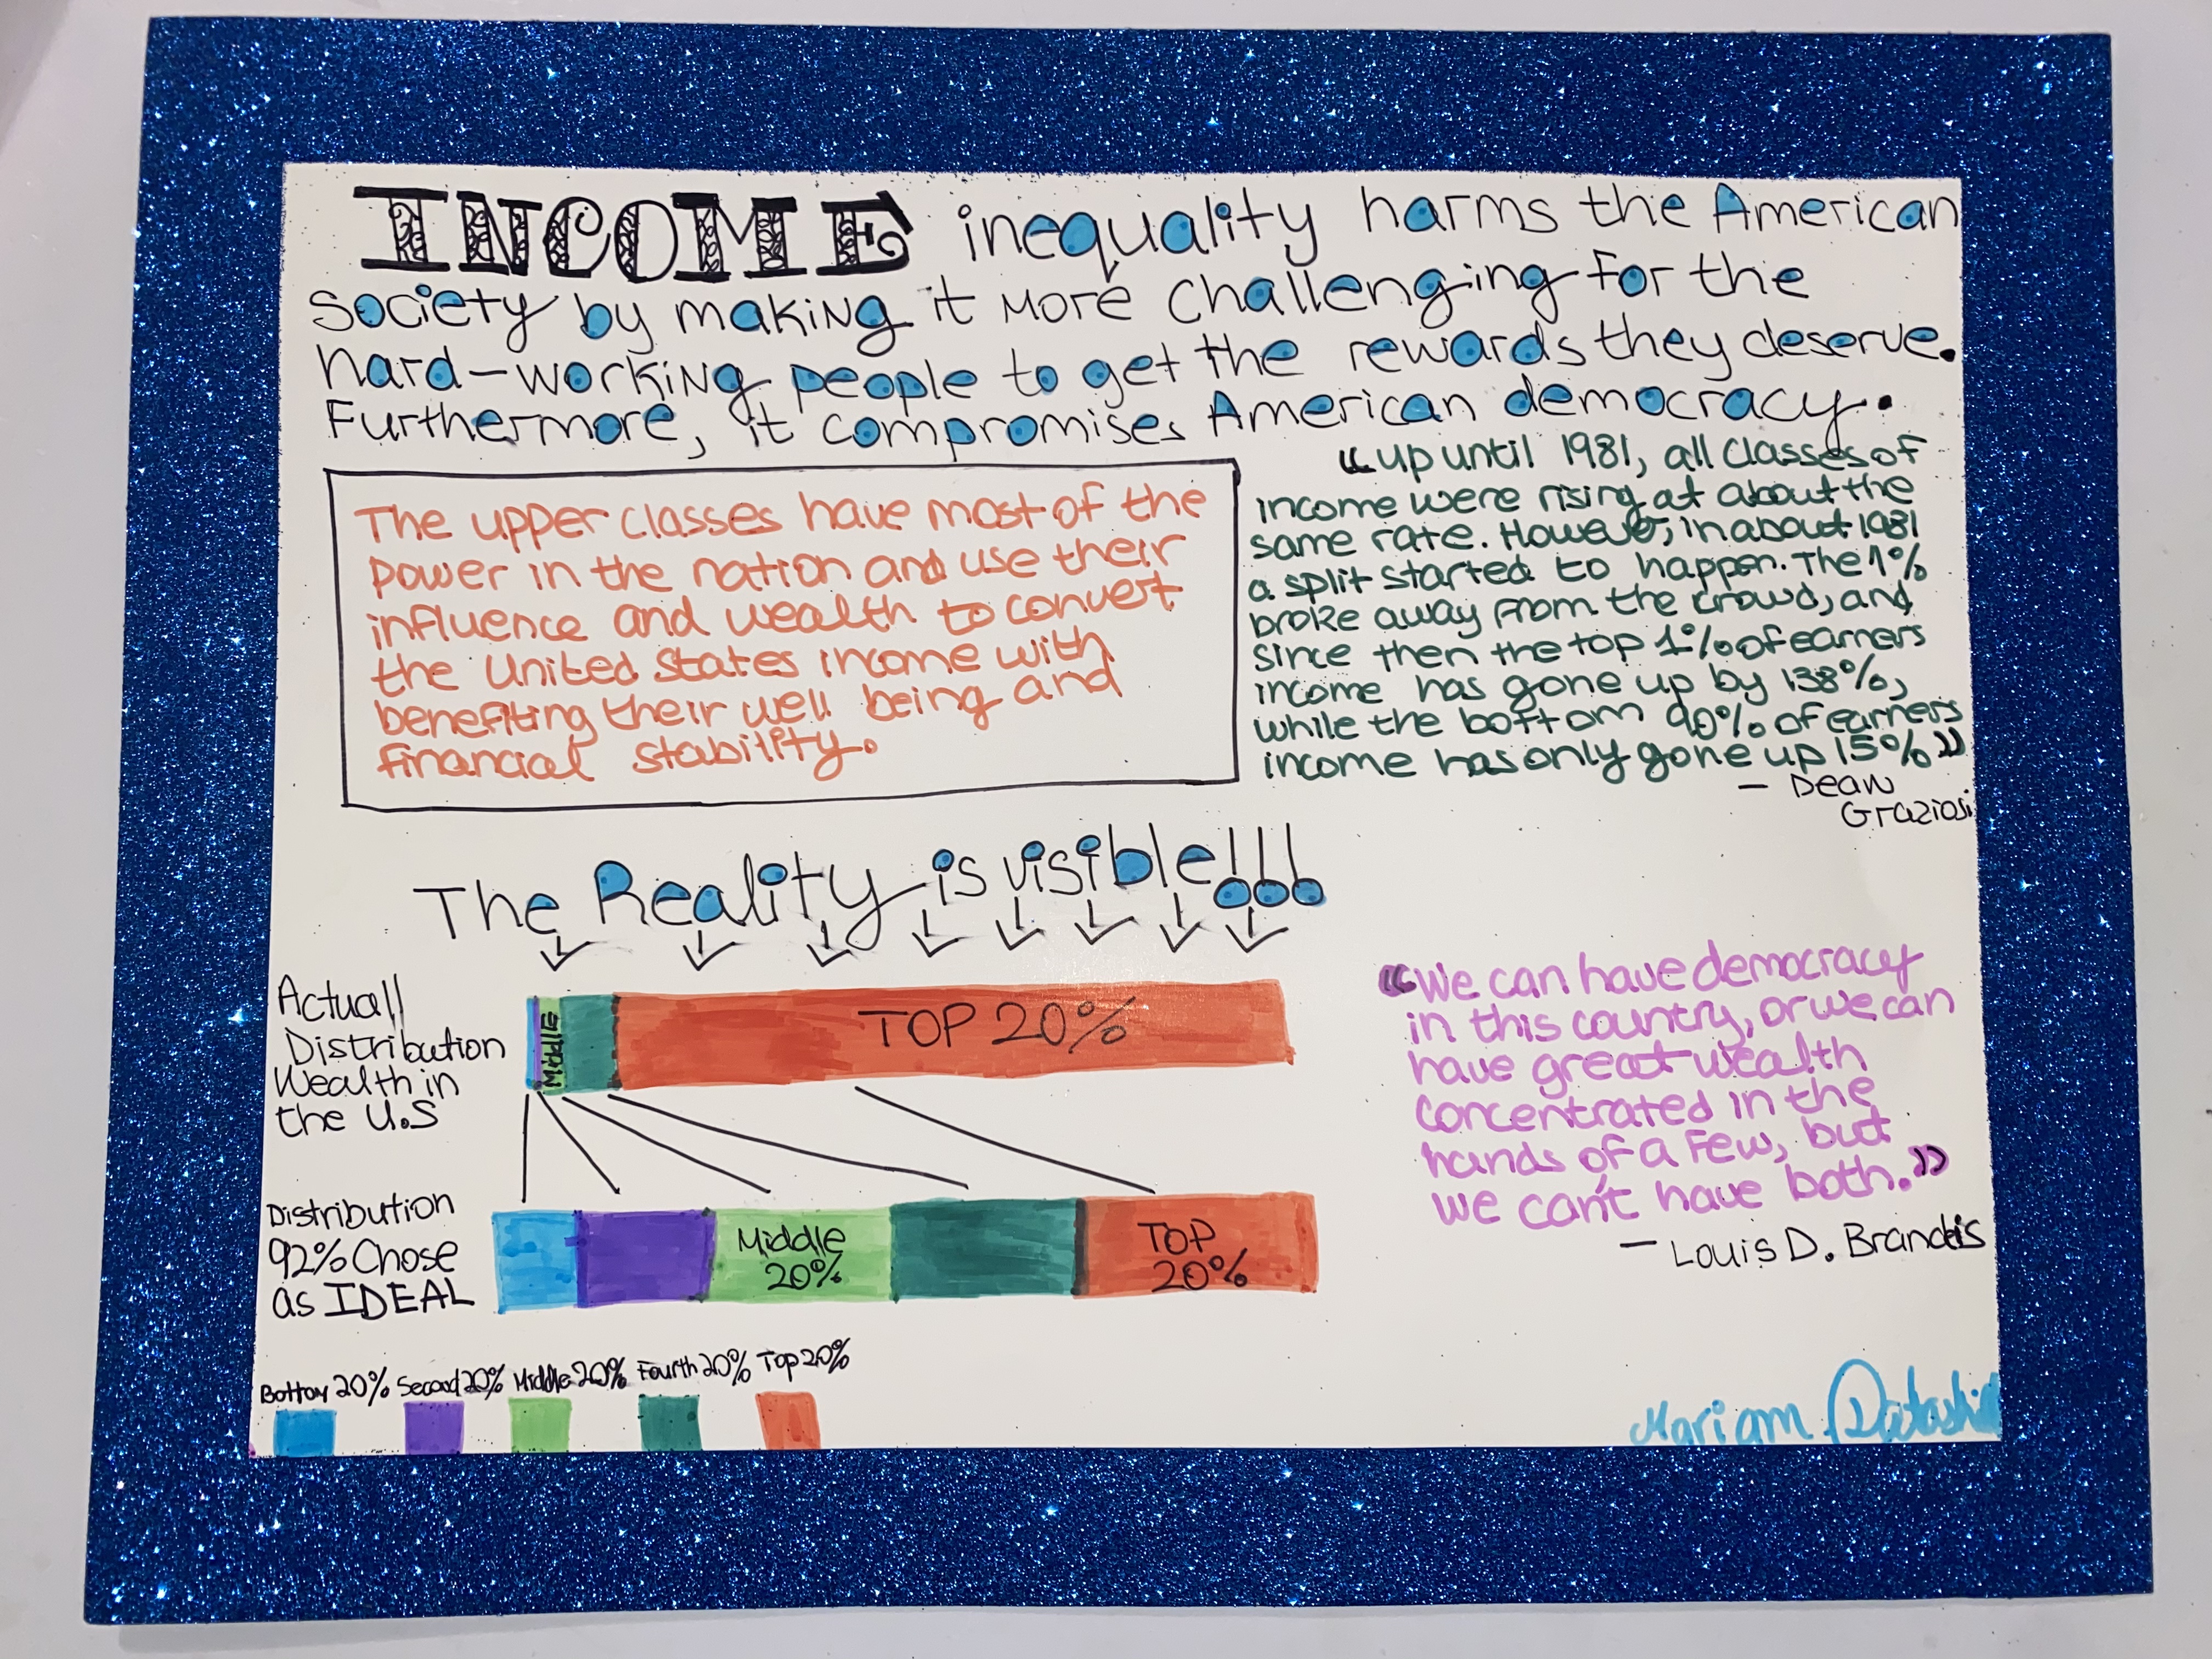 INCOME inequality harms the American
society by making it more challenging for the
hard-working people to get the rewards they deserve.
Furthermore, it compromises American democracy.
The upper classes have most of the
power in the nation and use their
influence and wealth to convert
the United States income with
benefiting their well being and
financial stability.
"up until 1981, all classes of
income were rising at about the
same rate. However, in about 1981
a split started to happen. The 1%
broke away from the crowd, and
since then the top 1% of earners
income has gone up by 138%,
while the bottom 90% of earners
income has only gone up 15%"
- Dean
Graziosi
The Reality is visible!!!
Actuall
Distribution
Wealth in
the U.S
Middle
TOP 20%
Distribution
92% Chose
as IDEAL
Middle
20%
TOP
20%
"We can have democracy
in this country, or we can
have great wealth
concentrated in the
hands of a few, but
we can't have both."
- Louis D. Brandeis
Bottom 20% Second 20% Middle 20% Fourth 20% Top 20%
Mariam